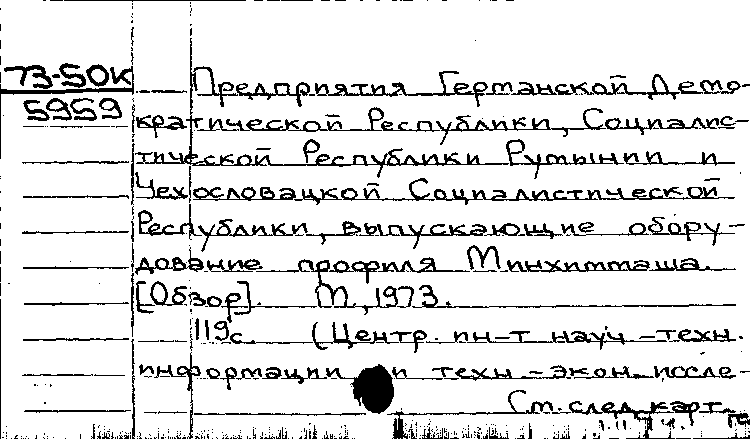 73-50к
5959
Предприятия Германской Демо-
кратической Республики, Социалис-
тической Республики Румынии и
Чехословацкой Социалистической
Республики, выпускающие обору-
дование профиля Минхиммаша.
[Обзор]. М, 1973.
119с. (Центр. ин-т науч-техн.
информации и техн-экон. иссле-
См. след. карт.